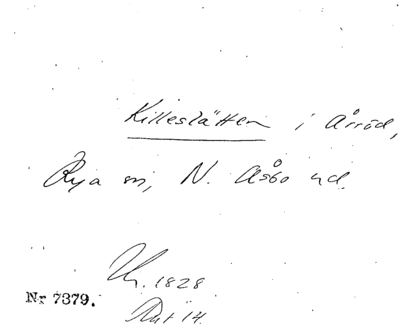 Killeslätten i Årröd,
Rya sn, N. Åsbo hd.
Uh. 1828
Nr 7379.
Rut 14.